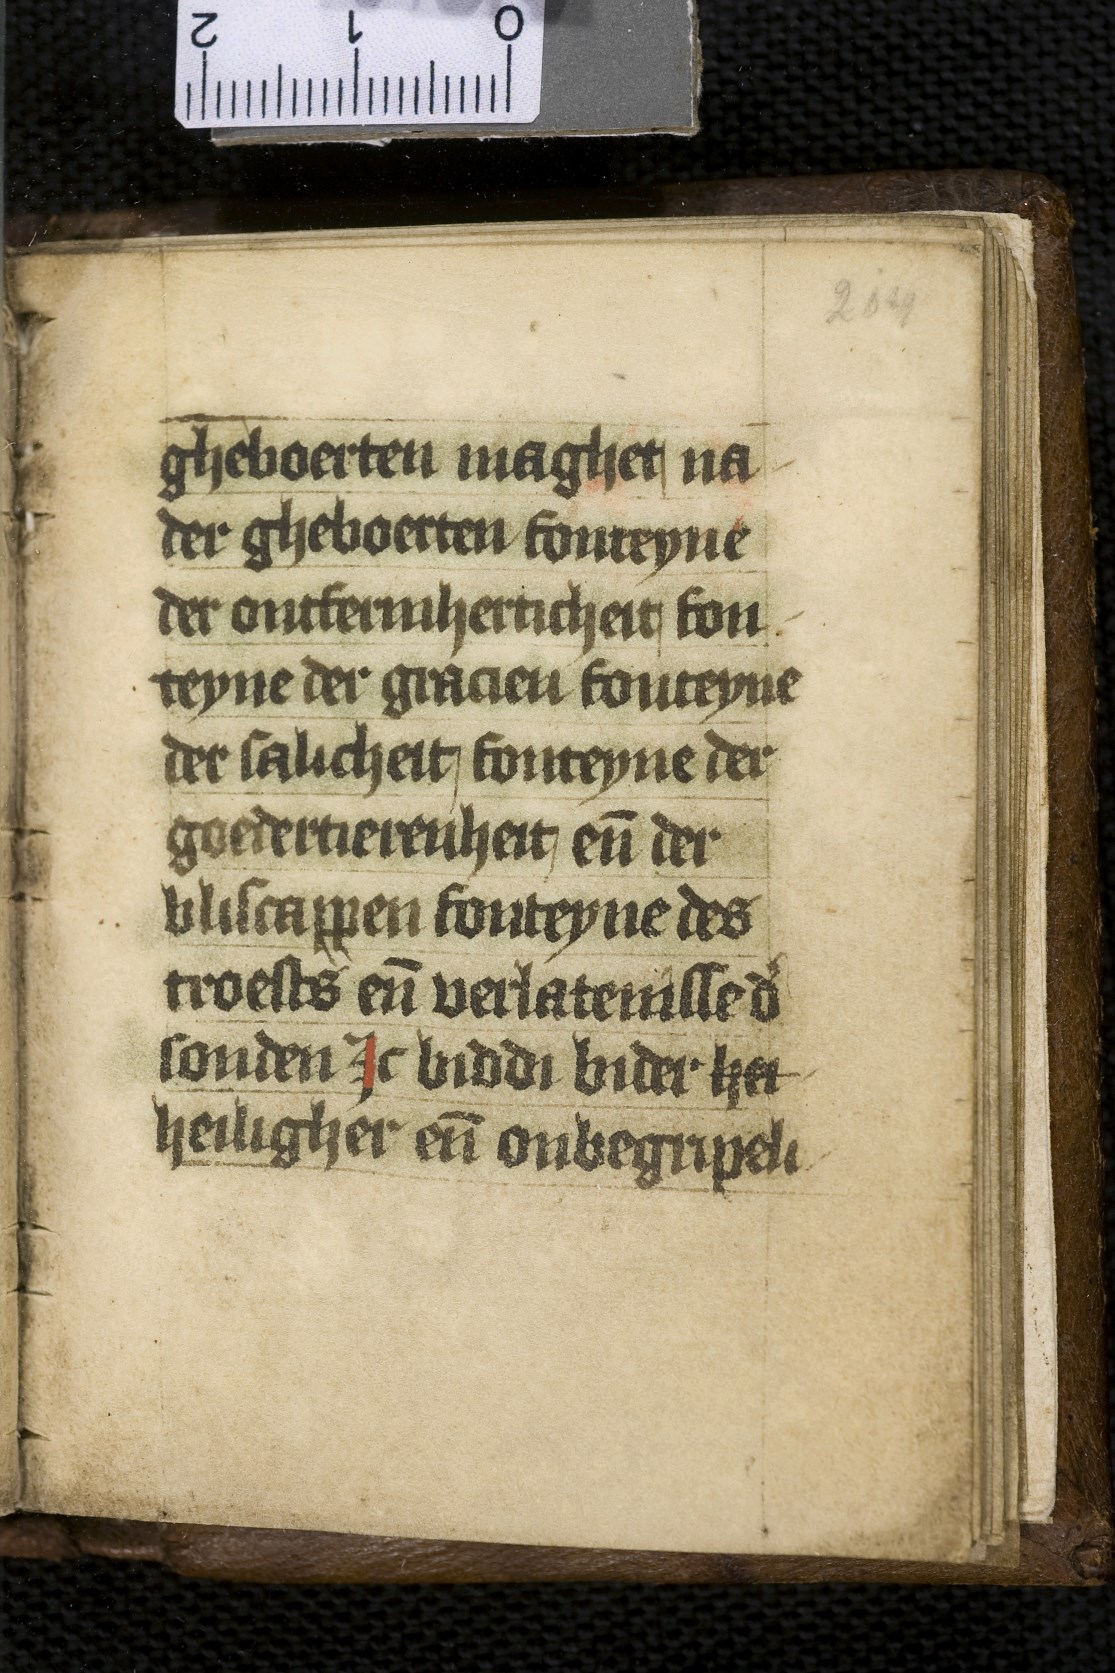 2 1 0
gheboerten maghet na
der gheboerten fonteyne
der ontfermherticheit fon
teyne der gracien fonteyne
der salicheit fonteyne der
goedertierenheit en̄ der
bliscappen fonteyne des
troests en̄ verlatenisse d'
sonden Ic biddi bider hei
heiligher en̄ onbegripeli